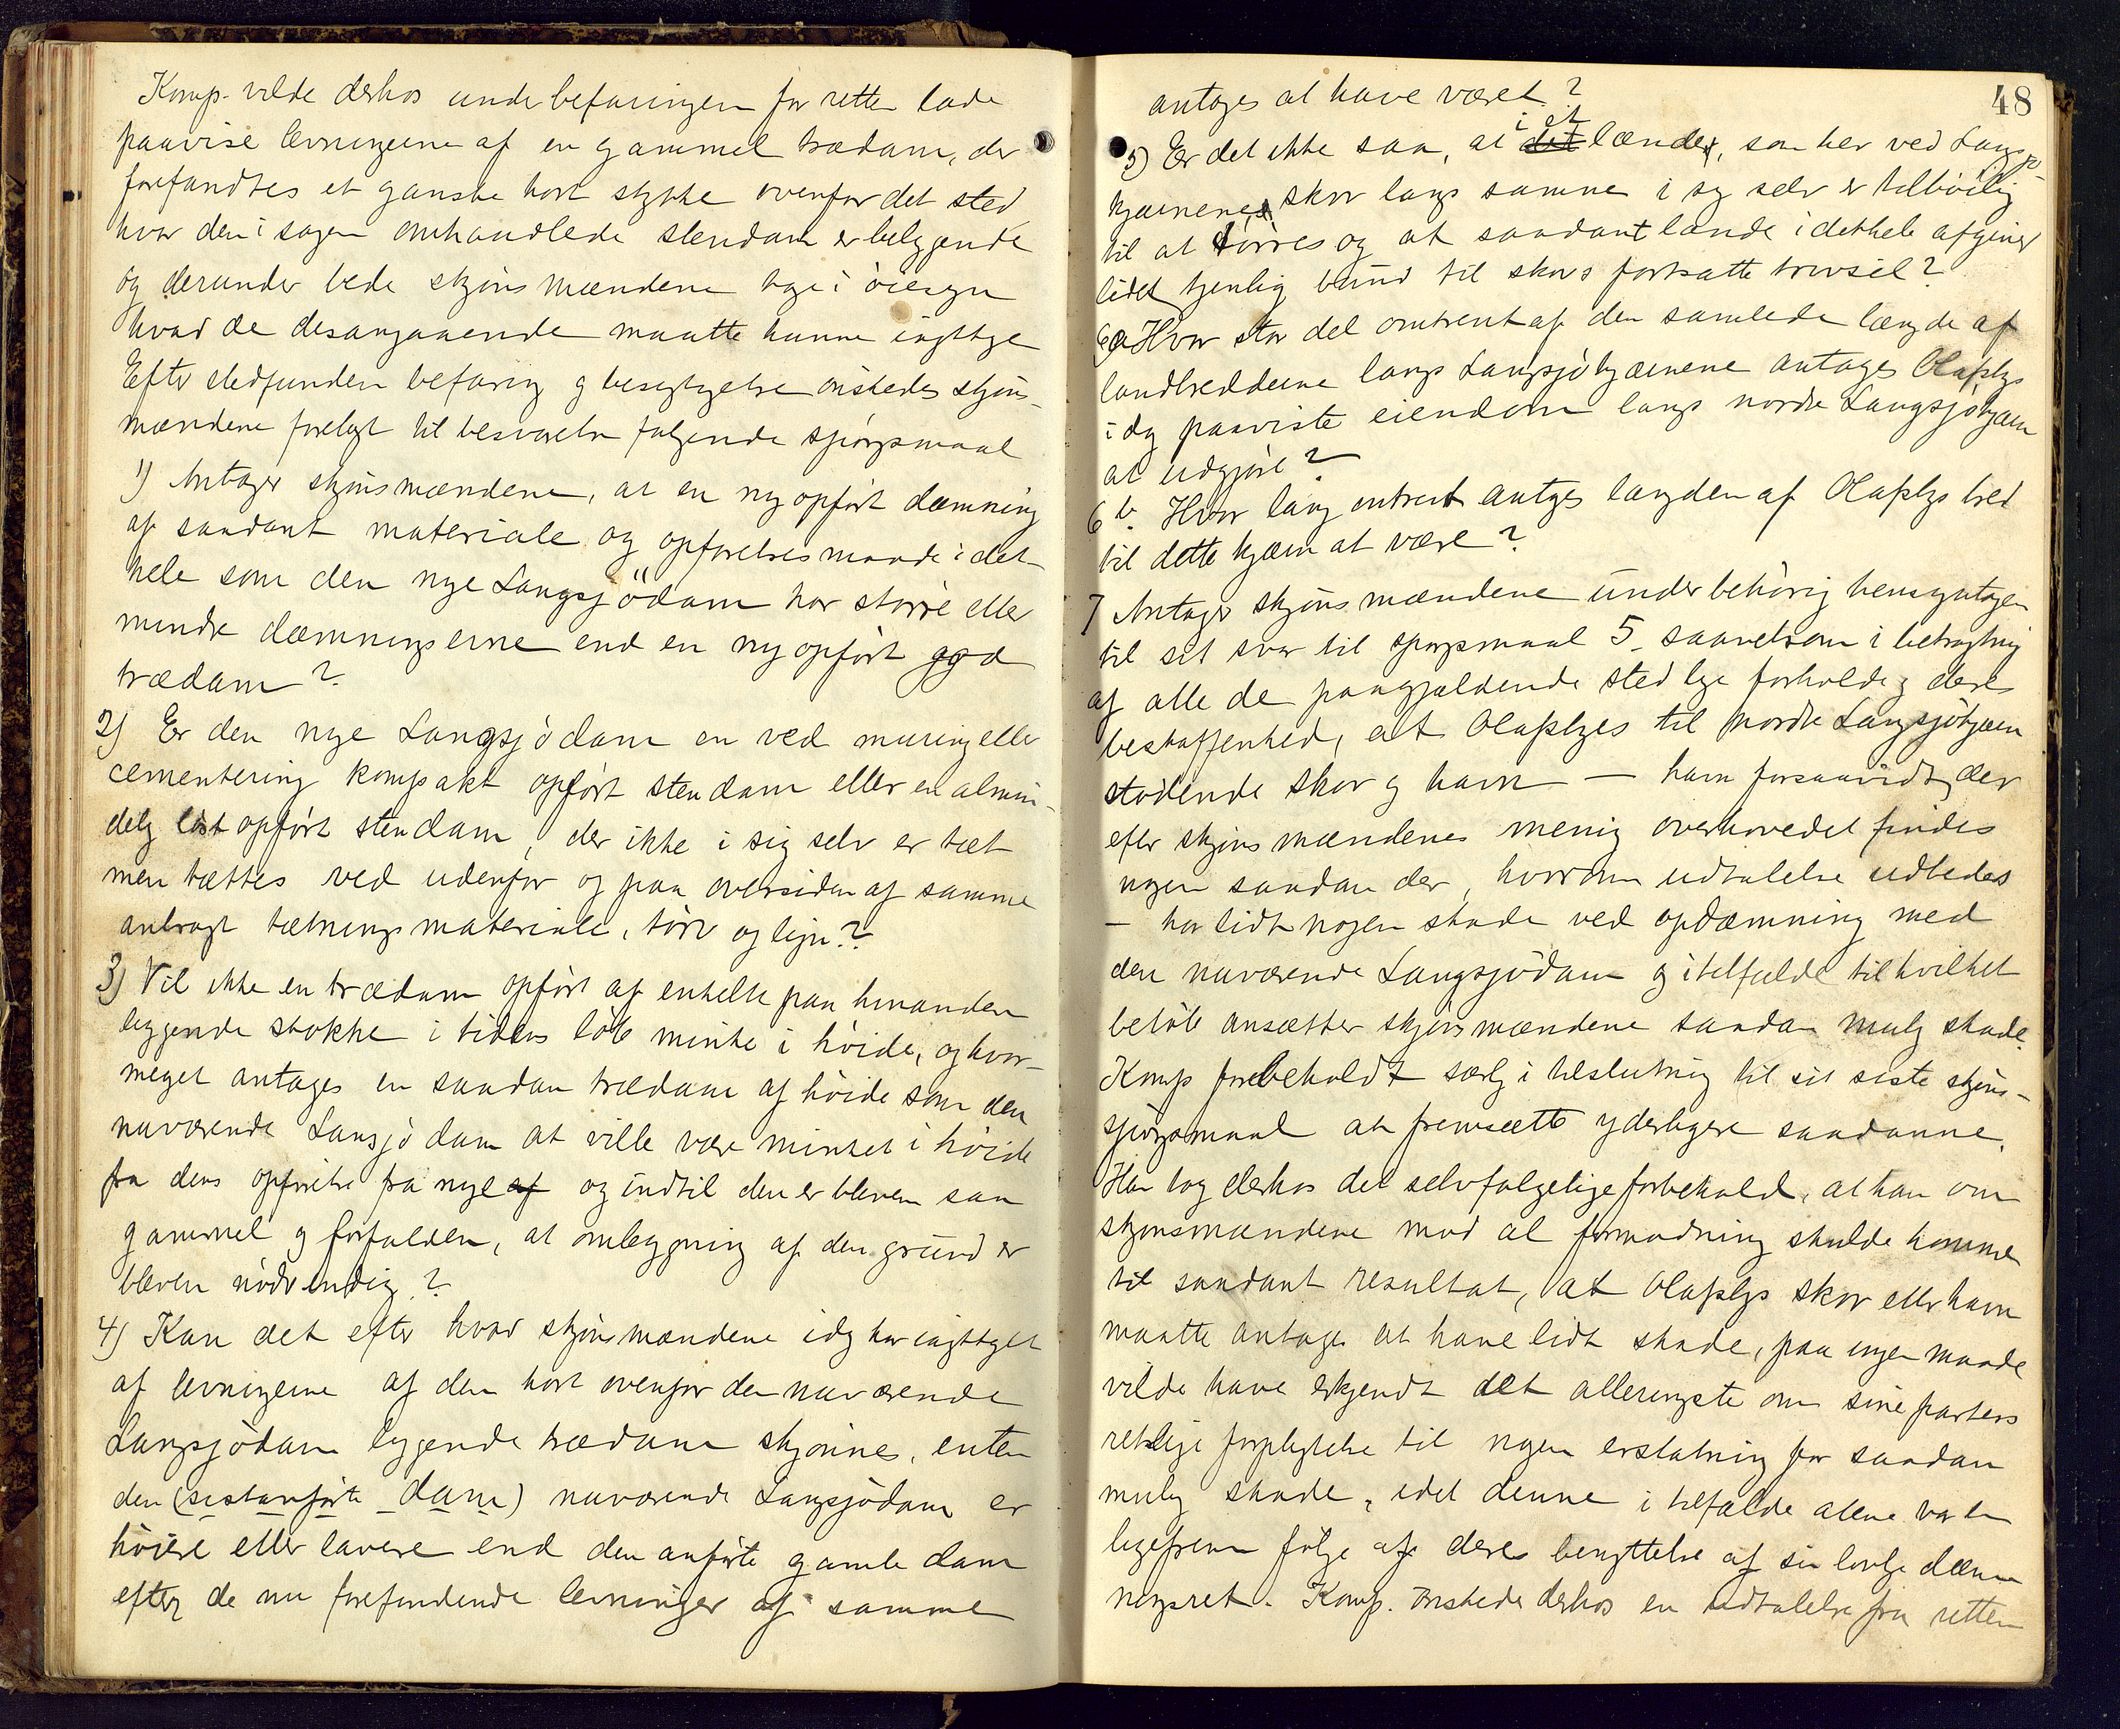 Komp. vilde derhos under befaringen for retten lade
paavise levningerne af en gammel trædam, der
forefandtes et ganske kort stykke ovenfor det sted,
hvor den i sagen omhandlede stendam er beliggende
og derunder bede skjønsmændene tage i øiesyn
hvad de desangaaende maatte kunne iagttage
Efter stedfunden befaring og besigtigelse ønskedes skjøns-
mændene forelagt til besvarelse følgende spørgsmaal
1) Antager skjønsmændene, at en ny opført dæmning
af saadant materiale og opførelsesmaade i det-
hele som den nye Langsjödam har større eller
mindre dæmningsevne end en ny opført god
trædam?
2) Er den nye Langsjødam en ved muring eller
cementering kompakt opført stendam eller en almin-
delig løst opført stendam, der ikke i sig selv er tæt
men tættes ved udenfor og paa oversiden af samme
anbragt tætningsmateriale, törv og lign?
3) Vil ikke en trædam opført af enkelte paa hinanden
liggende stokke i tidens løb minke i høide, og hvor-
meget antages en saadan trædam af høide som den
nuværende Lansjødam at ville være minket i høide
fra dens opførelse fra nye af og indtil den er bleven saa
gammel og forfalden, at ombygning af den grund er
bleven nødvendig?
4) Kan det efter hvad skjønsmændene idag har iagttaget
af levningerne af den kort ovenfor den nuværende
Langsjødam liggende trædam skjønnes, enten
den (sistanførte dam) nuværende Langsjødam er
høiere eller lavere end den anførte gamle dam
efter de nu forefindende levninger af samme
48
antages at have været?
i et
5) Er det ikke saa, at det lænde, som her ved Langsjø-
kjærnene skov langs samme i sig selv er tilbøielig
til at tørres og at saadant lænde i dethele afgiver
lidet tjenlig bund til skovs fortsatte trivsel?
6a Hvor stor del omtrent af den samlede længde af
landbredderne langs Langsjøkjærnene antages Olafsbys
idag paaviste eiendom langs nordre Langsjøkjærn
at udgjøre?
6 b. Hvor lang omtrent antages længden af Olafsbys bred
til dette kjærn at være?
7 Antager skjønsmændene under behørig hensyntagen
til sit svar til spørgsmaal 5. saavelsom i betragtning
af alle de paagjældende stedlige forholde og deres
beskaffenhed, at Olafsbyes til nordre Langsjøkjærn
stødende skov og havn — havn forsaavidt der
efter skjønsmændenes mening overhovedet findes
nogen saadan der, hvorom udtalelse udbedes
— har lidt nogen skade ved opdæmning med
den nuværende Langsjødam og i tilfælde til hvilket
beløb ansætter skjønsmændene saadan mulig skade.
Komp forebeholdt særlig i tilslutning til sit siste skjøns-
spørgsmaal at fremsætte yderligere saadanne.
Han tog derhos det selvfølgelige forbehold, at han om
skjønsmændene mod al formodning skulde komme
til saadant resultat, at Olafsbys skov eller havn
maatte antages at have lidt skade, paa ingen maade
vilde have erkjendt det allerringeste om sine parters
retslige forpligtelse til nogen erstatning for saadan
mulig skade, idet denne i tilfælde alene var en
ligefrem følge af deres benyttelse af sin lovlige dæm-
ningsret. Komp. ønskede derhos en udtalelse fra retten